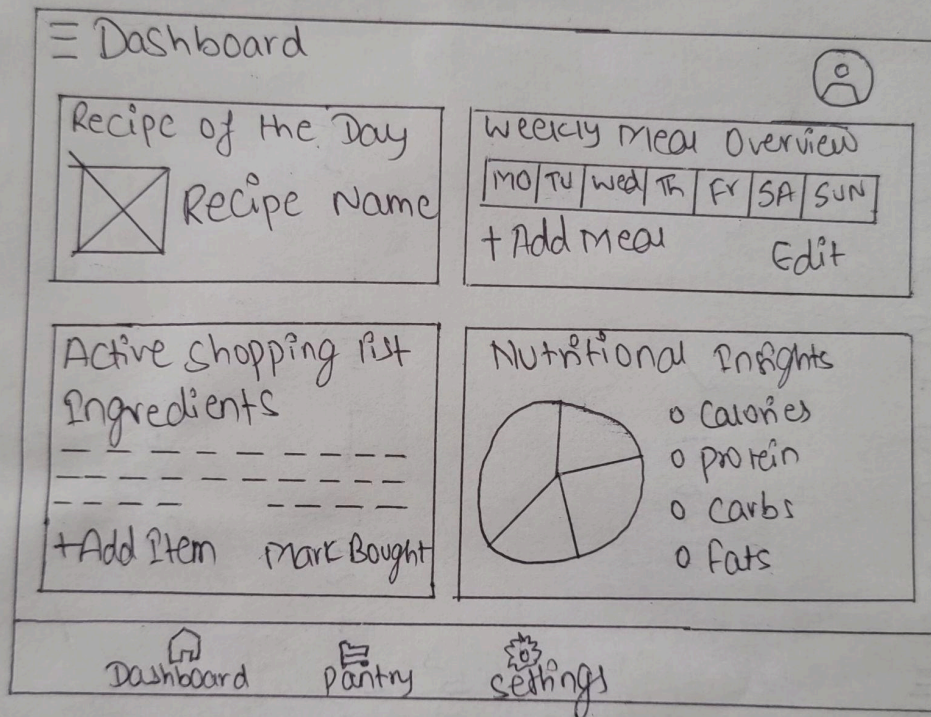 Dashboard
Recipe of the Day
Recipe Name
Weekly Meal Overview
MO TU Wed Th Fr SA SUN
+ Add Meal
Edit
Active Shopping list
Ingredients
+Add Item Mark Bought
Nutritional Insights
Calories
protein
Carbs
Fats
Dashboard Pantry Settings